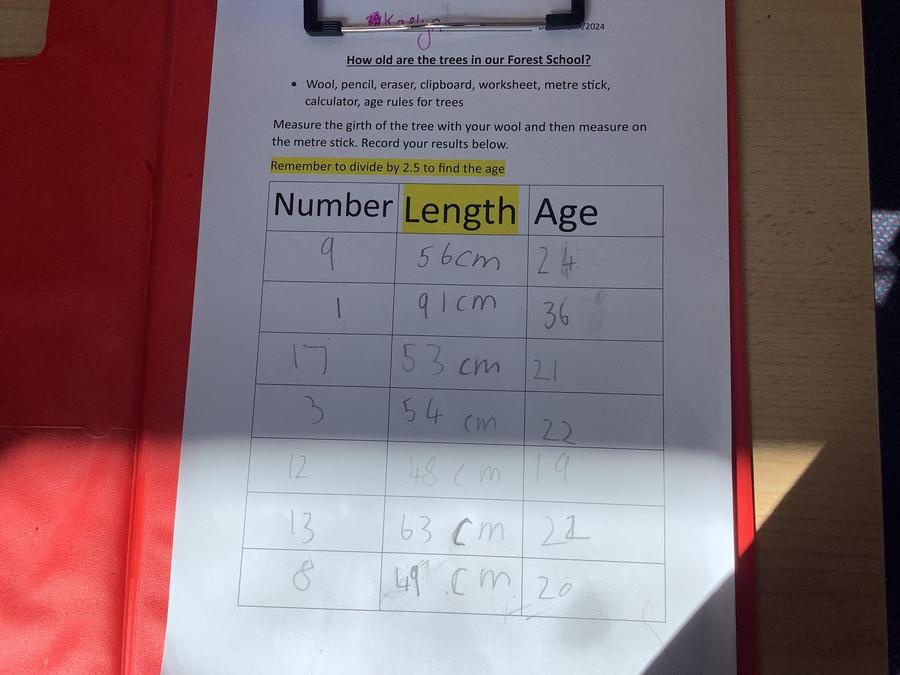 /2024
How old are the trees in our Forest School?
• Wool, pencil, eraser, clipboard, worksheet, metre stick,
calculator, age rules for trees
Measure the girth of the tree with your wool and then measure on
the metre stick. Record your results below.
Remember to divide by 2.5 to find the age
Number Length Age
9 56cm 24
1 91cm 36
17 53 cm 21
3 54 cm 22
12 48cm 19
13 63 cm 22
8 49 cm 20